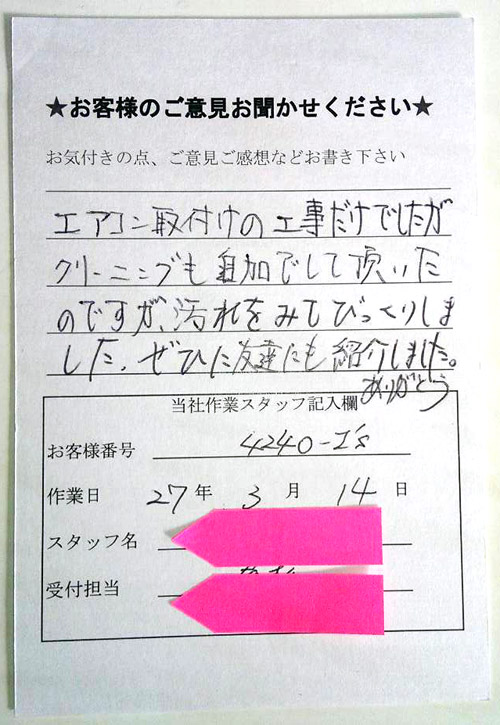 ★お客様のご意見お聞かせください★
お気付きの点、ご意見ご感想などお書き下さい
エアコン取付けの工事だけでしたが
クリーニングも追加でして頂いた
のですが、汚れをみてびっくりしま
した。ぜひた友達にも紹介しました。
ありがとう
当社作業スタッフ記入欄
お客様番号 4240-I's
作業日 27年 3月 14日
スタッフ名
受付担当